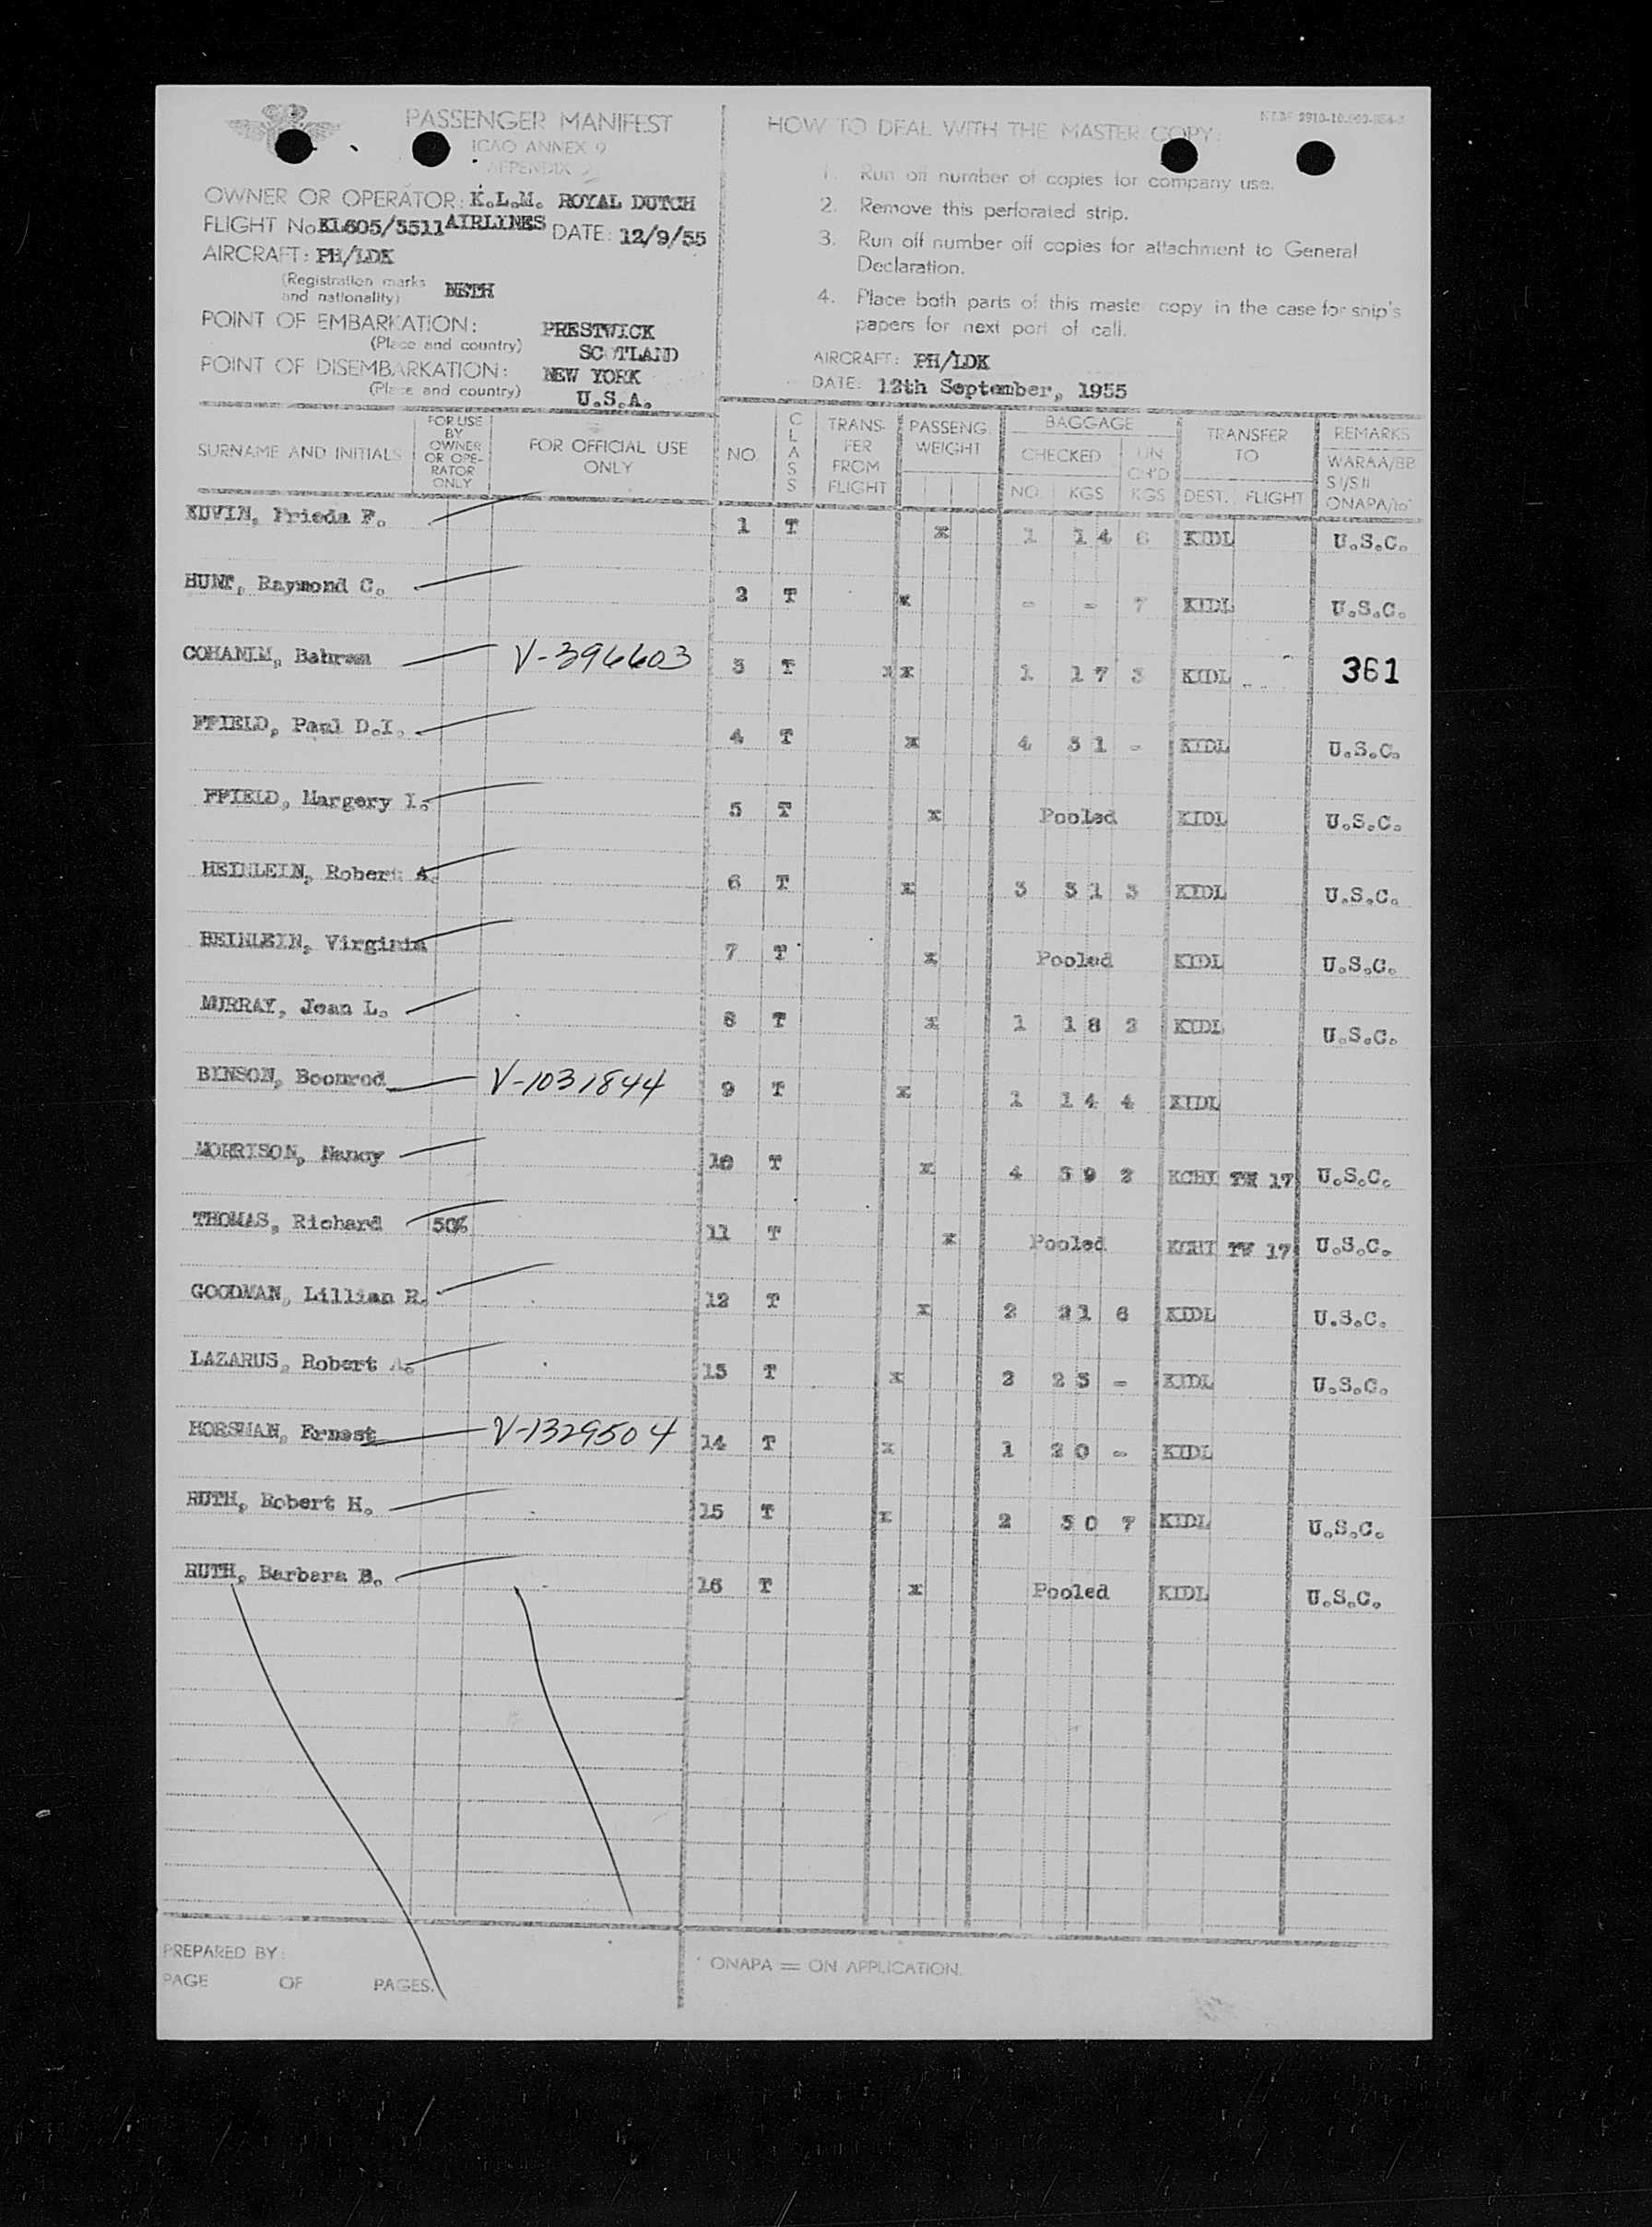 PASSENGER MANIFEST
ICAO ANNEX 9
APPENDIX
OWNER OR OPERATOR: K.L.M. ROYAL DUTCH
FLIGHT No KL605/5511 AIRLINES DATE: 12/9/55
AIRCRAFT: PH/LDK
(Registration marks
and nationality) NETH
POINT OF EMBARKATION: PRESTWICK
(Place and country) SCOTLAND
POINT OF DISEMBARKATION: NEW YORK
(Place and country) U.S.A.
HOW TO DEAL WITH THE MASTER COPY:
1. Run off number of copies for company use.
2. Remove this perforated strip.
3. Run off number off copies for attachment to General
Declaration.
4. Place both parts of this master copy in the case for ship's
papers for next port of call.
AIRCRAFT: PH/LDK
DATE: 12th September, 1955
SURNAME AND INITIALS FOR USE BY OWNER OR OPE-RATOR ONLY FOR OFFICIAL USE ONLY NO. CLASS TRANS-FER FROM FLIGHT PASSENG. WEIGHT BAGGAGE CHECKED NO. KGS UN CH'D KGS TRANSFER TO DEST. FLIGHT REMARKS WARAA/BB SI/SII ONAPA/to
KUVIN, Frieda F. 1 T x 1 14 6 KIDL U.S.C.
HUNT, Raymond C. 2 T x - - 7 KIDL U.S.C.
COHANIM, Bahram V-396603 3 T xx 1 17 3 KIDL 361
FFIELD, Paul D.I. 4 T x 4 51 - KIDL U.S.C.
FFIELD, Margery I. 5 T x Pooled KIDL U.S.C.
HEINLEIN, Robert A. 6 T x 3 51 3 KIDL U.S.C.
HEINLEIN, Virginia 7 T x Pooled KIDL U.S.C.
MURRAY, Jean L. 8 T x 1 18 2 KIDL U.S.C.
BINSON, Boonrod V-1031844 9 T x 1 14 4 KIDL
MORRISON, Nancy 10 T x 4 39 2 KCHI TW 17 U.S.C.
THOMAS, Richard 50% 11 T x Pooled KCHI TW 17 U.S.C.
GOODMAN, Lillian R. 12 T x 2 21 6 KIDL U.S.C.
LAZARUS, Robert A. 13 T x 2 23 - KIDL U.S.C.
HORSMAN, Ernest V-1329504 14 T x 1 20 - KIDL
RUTH, Robert H. 15 T x 2 30 7 KIDL U.S.C.
RUTH, Barbara B. 16 T x Pooled KIDL U.S.C.
PREPARED BY:
PAGE OF PAGES.
' ONAPA = ON APPLICATION.